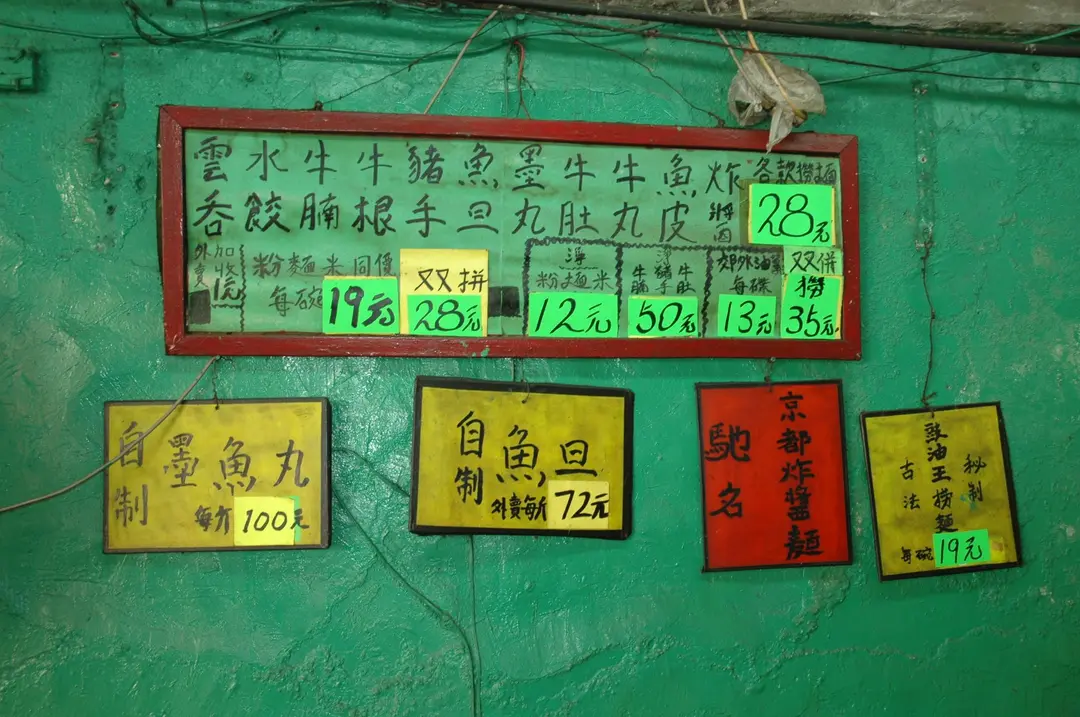 雲吞
水餃
牛腩
牛根
豬手
魚旦
墨丸
牛肚
牛丸
魚皮
炸將
各款撈麵
28元
外賣
加收1元
粉麵米同價
每碗
19元
双拼
28元
淨
粉麵米
12元
淨
牛腩
豬手
牛肚
50元
郊外油
每碟
13元
双併
撈
35元
自制
墨魚丸
每斤
100元
自制
魚旦
外賣每斤
72元
京都炸醬麵
馳名
秘制
蔴油王撈麵
古法
每碗
19元